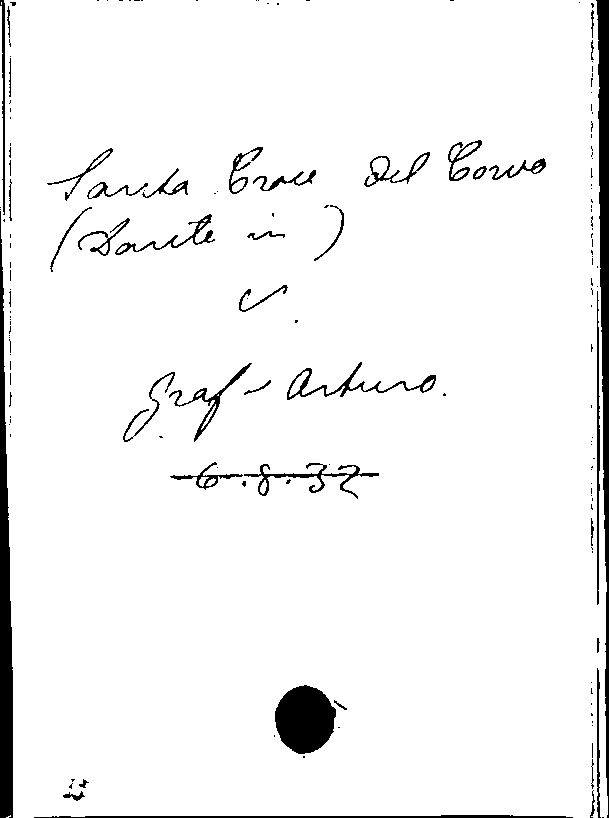 Santa Croce del Corvo
(Dante in)
v.
Graf - Arturo.
6.8.32